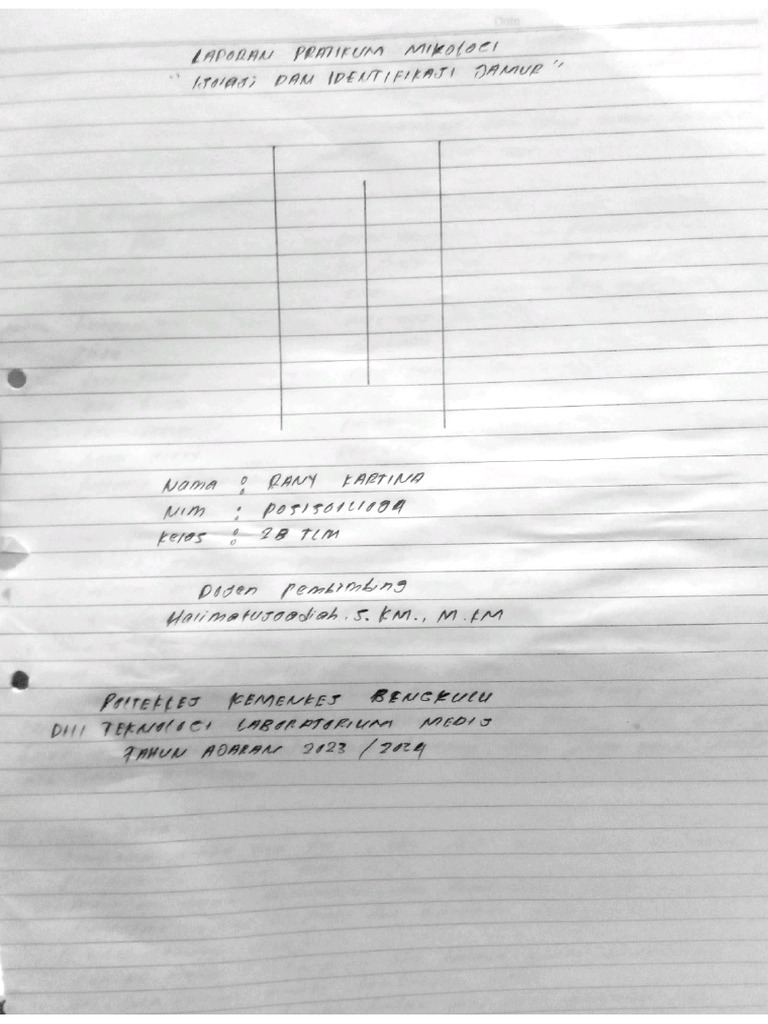 Date
LAPORAN PRATIKUM MIKOLOGI
"ISOLASI DAN IDENTIFIKASI JAMUR"
Nama : RANY KARTINA
NIM :
Kelas : 2B TLM
Dosen Pembimbing
Halimatusaadiah. S. KM., M. KM
POLTEKKES KEMENKES BENGKULU
DIII TEKNOLOGI LABORATORIUM MEDIS
TAHUN AJARAN 2023 / 2024